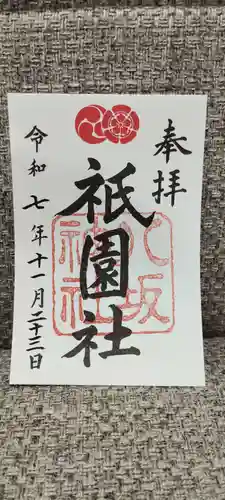 奉拝
祇園社
八坂神社
令和七年十一月二十三日